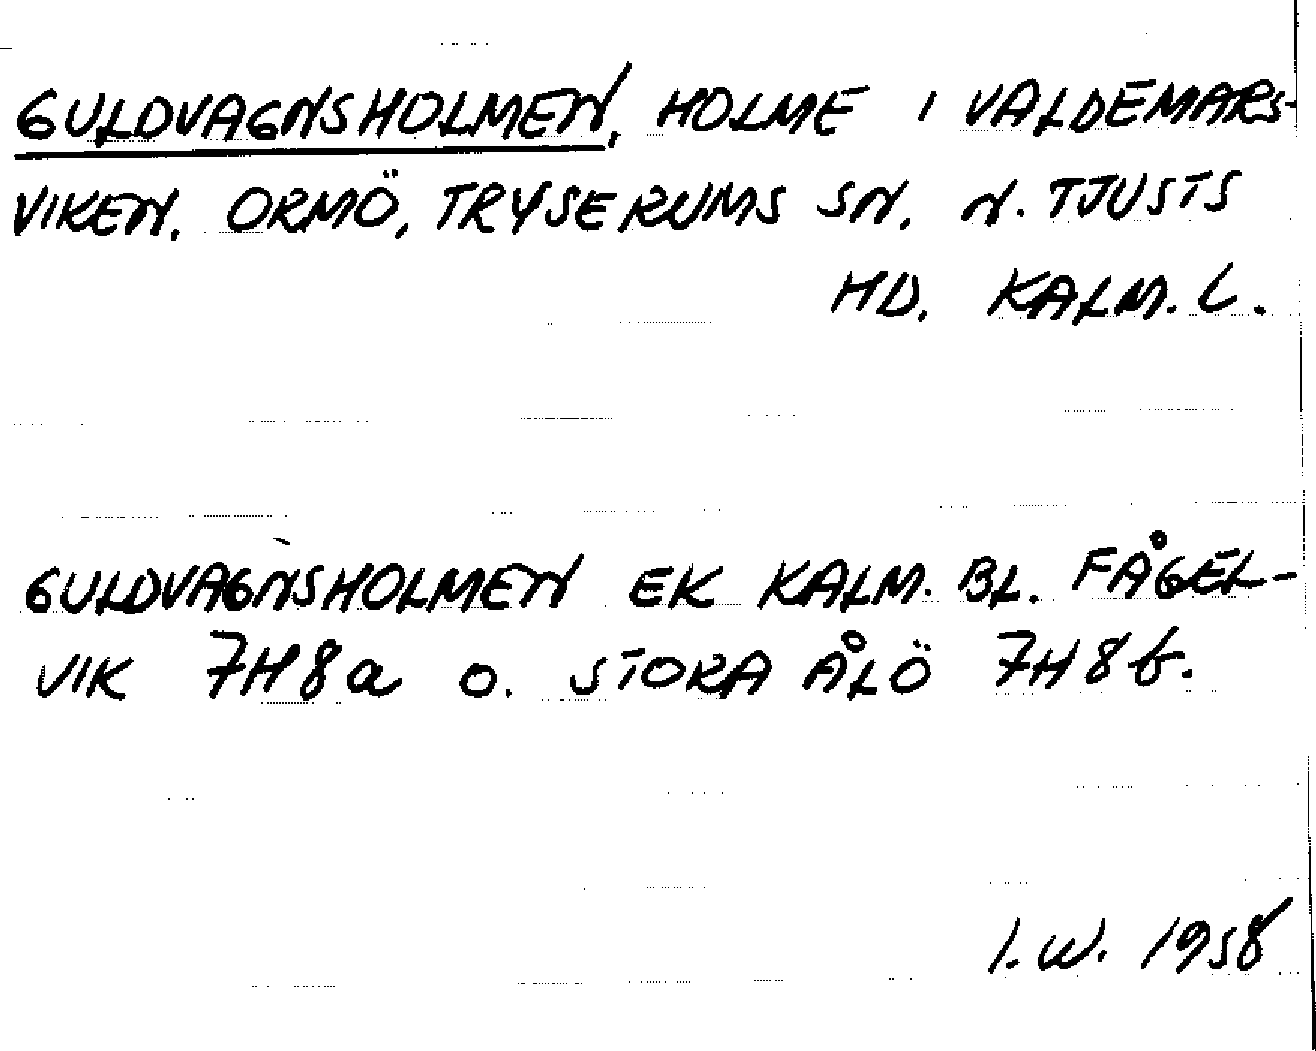 GULDVAGNSHOLMEN, HOLME I VALDEMARS-
VIKEN. ORMÖ, TRYSERUMS SN. N. TJUSTS
HD. KALM. L.
GULDVAGNSHOLMEN EK KALM. BL. FÅGEL-
VIK 7H8a O. STORA ÅLÖ 7H8b.
I.W. 1958